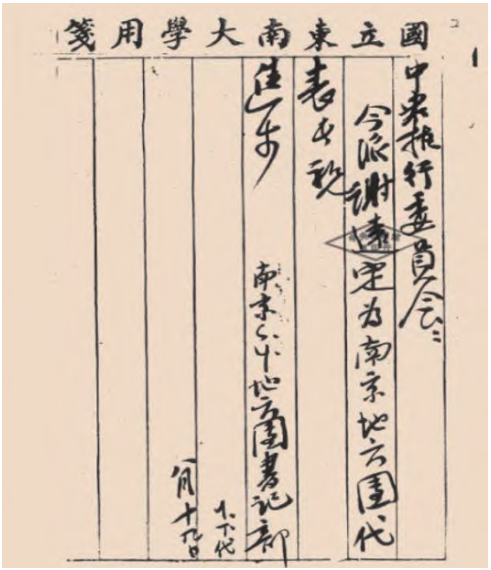 國立東南大學用箋
中央執行委員會：
今派謝遠定為南京地方團代
表出席
進步
南京S.Y.地方團書記部
八月十九日